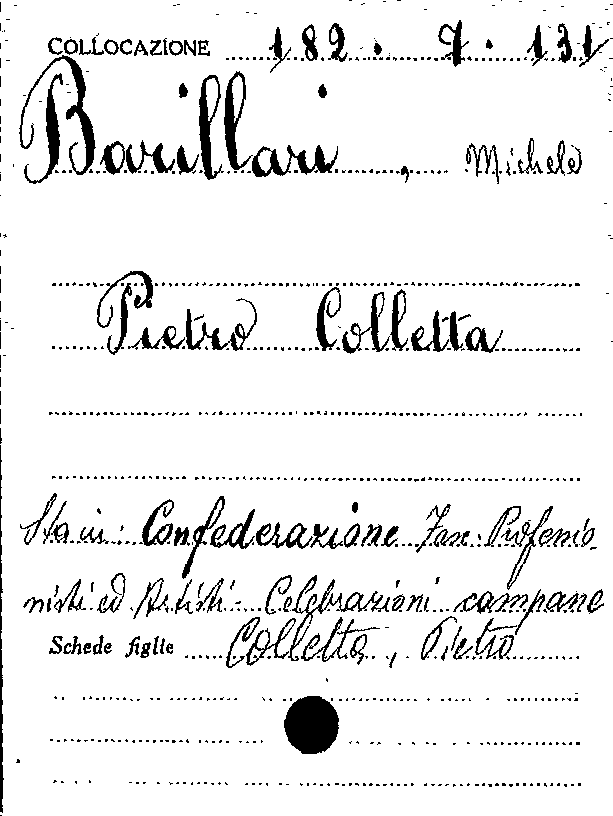 COLLOCAZIONE 182. 7. 131
Barillari, Michele
Pietro Colletta
Sta in: Confederazione Fasc. Professio-
nisti ed Artisti - Celebrazioni campane
Schede figlie Colletta, Pietro